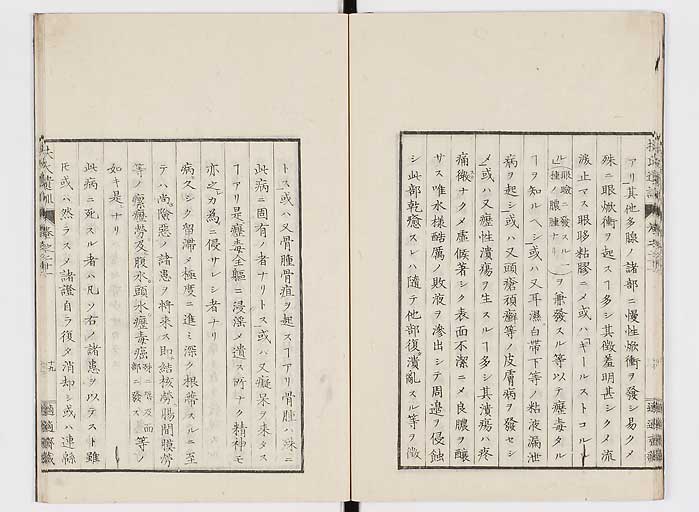 アリ其他多腺ノ諸部ニ慢性焮衝ヲ發シ易クメ
殊ニ眼焮衝ヲ起スヿ多シ其徴羞明甚シクメ流
涙止マス眼眵粘膠ニメ或ハ「ギールストコルレ
ル」(眼瞼ニ發スル一種ノ腺腫ナリ)ヲ兼發スル等以テ癧毒タル
ヿヲ知ルヘシ或ハ又耳濕白帶下等ノ粘液漏泄
病ヲ起シ或ハ又頭瘡頑癬等ノ皮膚病ヲ發セシ
メ或ハ又癧性潰瘍ヲ生スルヿ多シ其潰瘍ハ疼
痛微ナクメ虚候著シク表面不潔ニメ良膿ヲ釀
サス唯水樣酷厲ノ敗液ヲ滲出シテ周邉ヲ侵蝕
シ此部乾癒スレハ隨テ他部復潰亂スル等ヲ徴
トス或ハ又骨腫骨疽ヲ起スヿアリ骨腫ハ殊ニ
此病ニ固有ノ者ナリトス或ハ又癡呆ヲ來タス
ヿアリ是癧毒全軀ニ浸滛メ遺ス所ナク精神モ
亦之カ為ニ侵サレシ者ナリ
病久シク留滯メ極度ニ進ミ深ク根蔕スルニ至
テハ尚險惡ノ諸患ヲ將來ス即結核勞腸間膜勞
等ノ瘰癧勞及腹水頭水癧毒癌等ノ
如キ是ナリ
此病ニ死スル者ハ凡ソ右ノ諸患ヲ以テスト雖
モ或ハ然ラスメ諸證自ラ復タ消却シ或ハ連緜
十九
適適齋藏